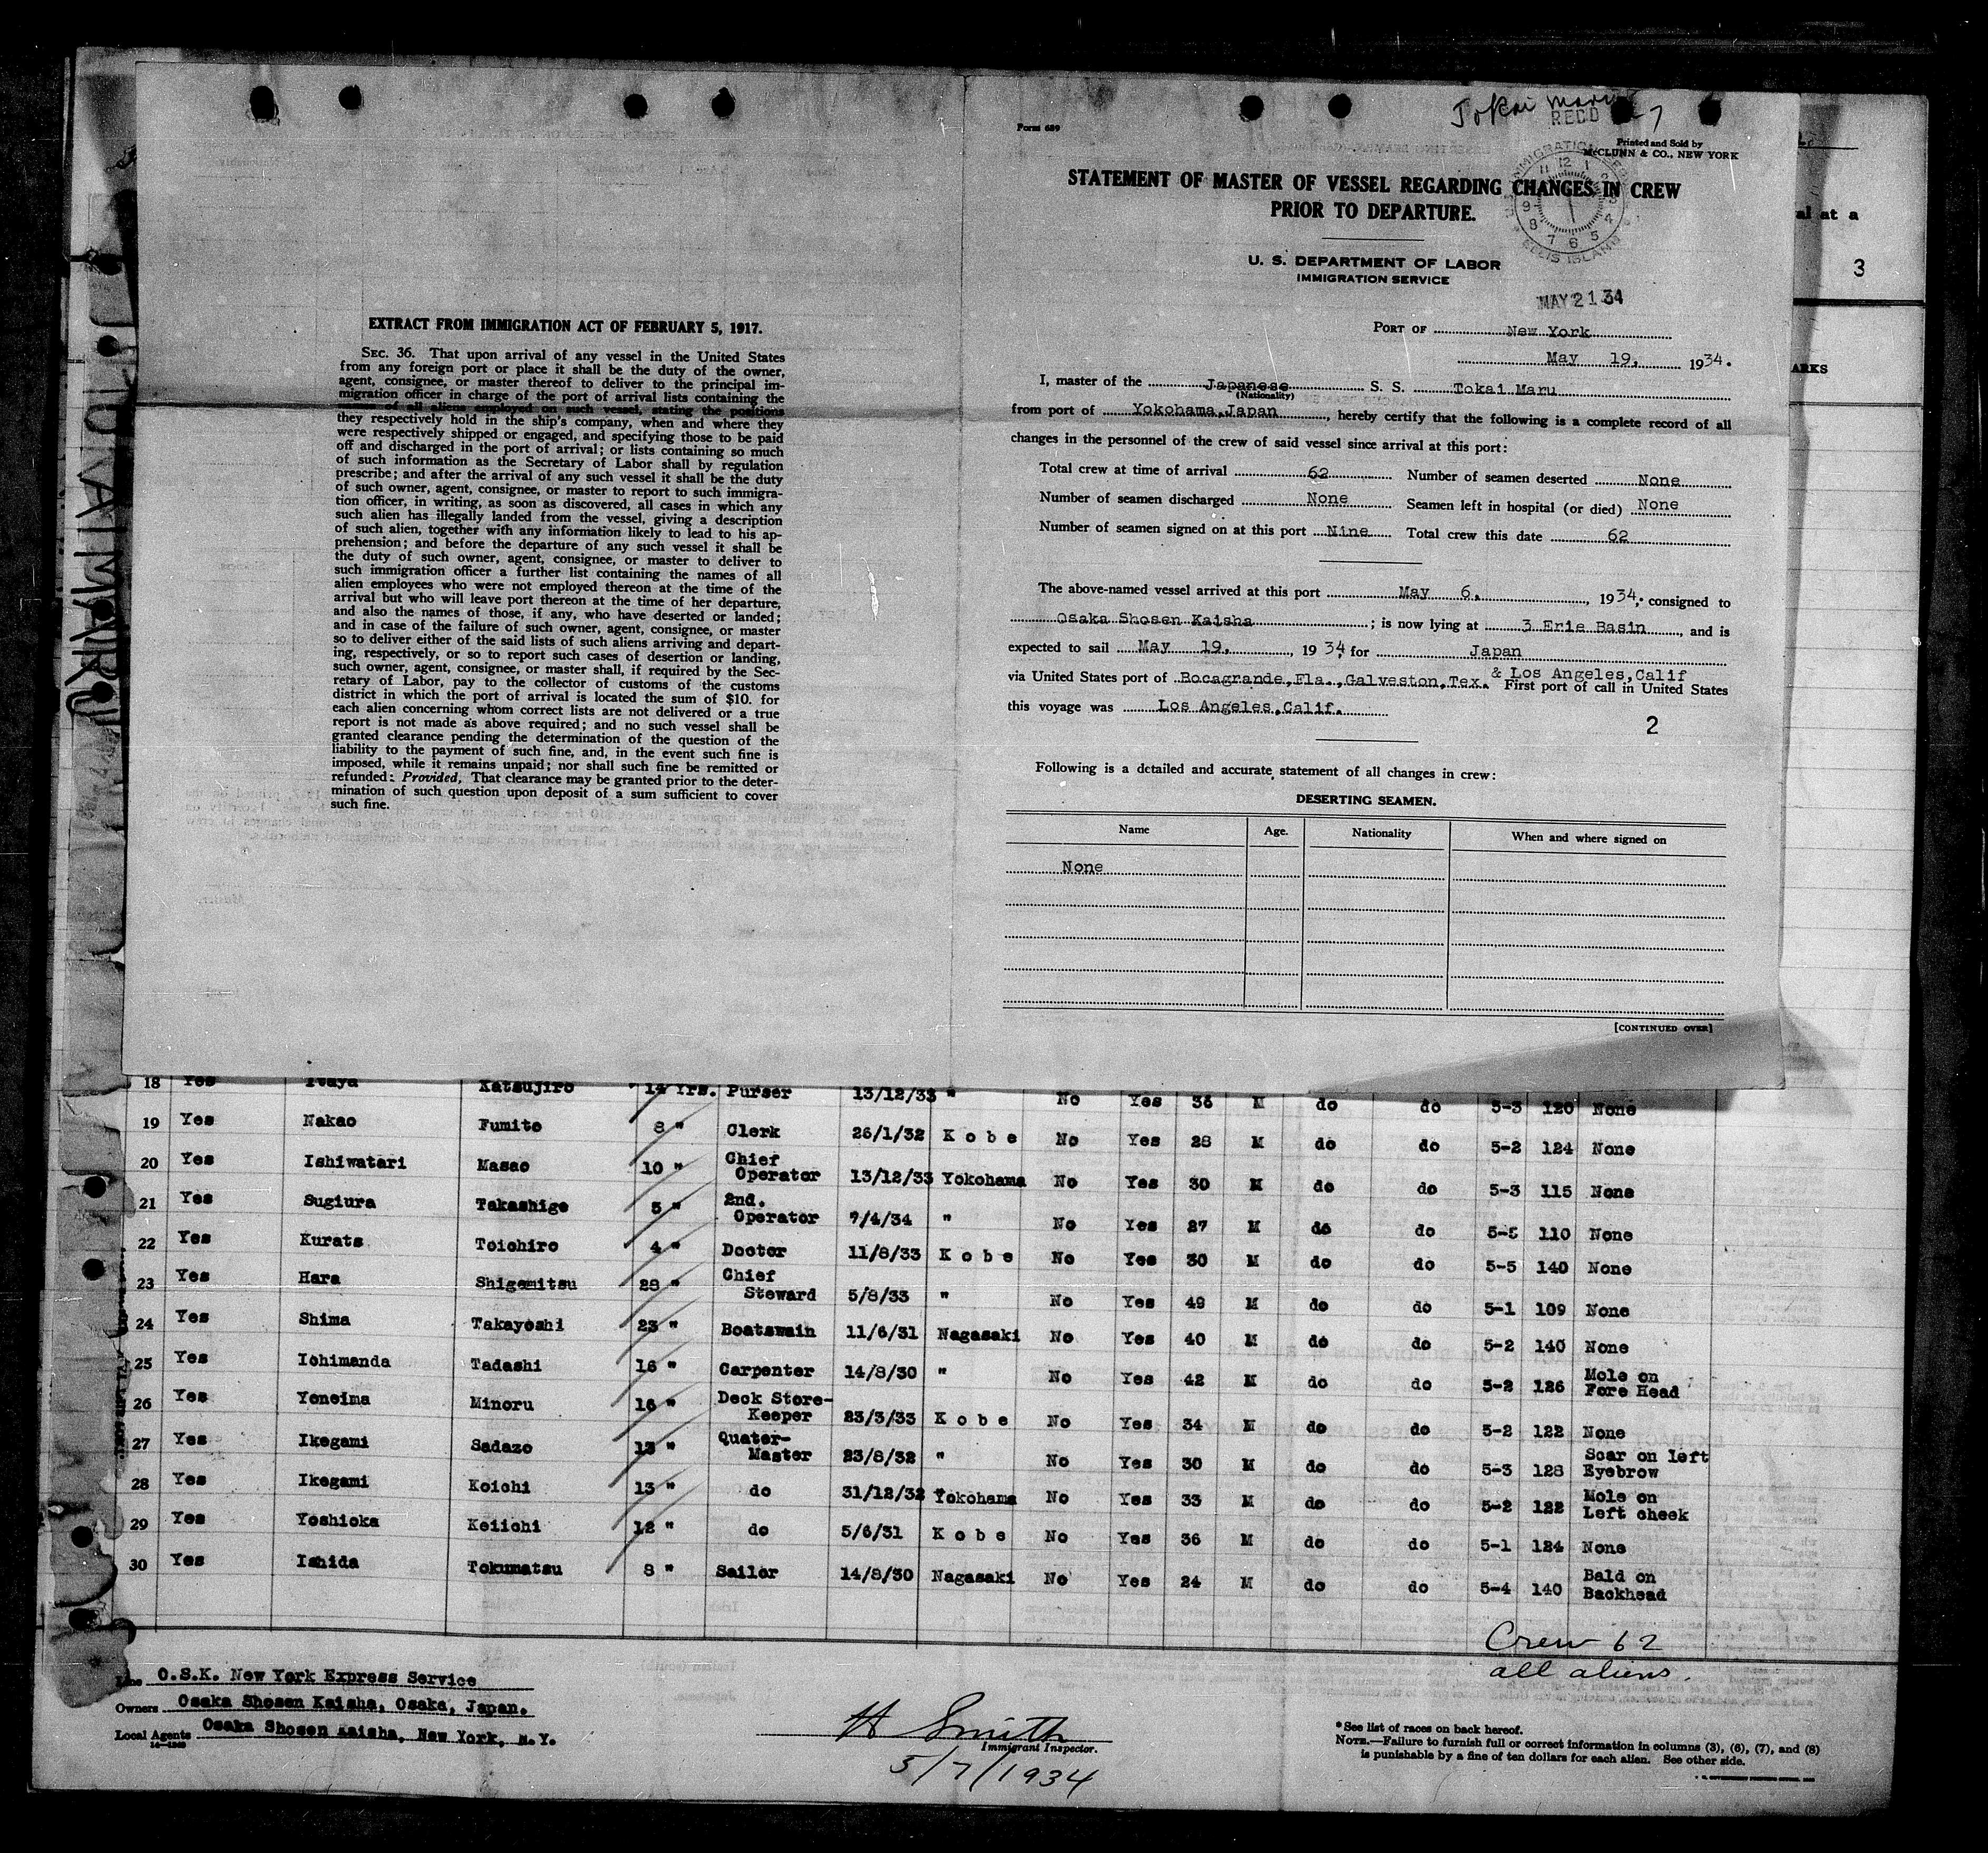 Tokai Maru
RECD
7
Form 689
Printed and Sold by
McCLUNN & CO., NEW YORK
STATEMENT OF MASTER OF VESSEL REGARDING CHANGES IN CREW
PRIOR TO DEPARTURE.
ELLIS ISLAND
U. S. DEPARTMENT OF LABOR
IMMIGRATION SERVICE
MAY 21 34
PORT OF New York
May 19, 1934.
I, master of the Japanese S. S. Tokai Maru
(Nationality)
from port of Yokohama, Japan, hereby certify that the following is a complete record of all
changes in the personnel of the crew of said vessel since arrival at this port:
Total crew at time of arrival 62 Number of seamen deserted None
Number of seamen discharged None Seamen left in hospital (or died) None
Number of seamen signed on at this port Nine Total crew this date 62
The above-named vessel arrived at this port May 6, 1934, consigned to
Osaka Shosen Kaisha; is now lying at 3 Erie Basin, and is
expected to sail May 19, 1934, for Japan
& Los Angeles, Calif
via United States port of Bocagrande, Fla., Galveston, Tex. First port of call in United States
this voyage was Los Angeles, Calif.
2
Following is a detailed and accurate statement of all changes in crew:
DESERTING SEAMEN.
Name Age. Nationality When and where signed on
None
[CONTINUED OVER]
EXTRACT FROM IMMIGRATION ACT OF FEBRUARY 5, 1917.
SEC. 36. That upon arrival of any vessel in the United States
from any foreign port or place it shall be the duty of the owner,
agent, consignee, or master thereof to deliver to the principal im-
migration officer in charge of the port of arrival lists containing the
names of all aliens employed on such vessel, stating the positions
they respectively hold in the ship's company, when and where they
were respectively shipped or engaged, and specifying those to be paid
off and discharged in the port of arrival; or lists containing so much
of such information as the Secretary of Labor shall by regulation
prescribe; and after the arrival of any such vessel it shall be the duty
of such owner, agent, consignee, or master to report to such immigra-
tion officer, in writing, as soon as discovered, all cases in which any
such alien has illegally landed from the vessel, giving a description
of such alien, together with any information likely to lead to his ap-
prehension; and before the departure of any such vessel it shall be
the duty of such owner, agent, consignee, or master to deliver to
such immigration officer a further list containing the names of all
alien employees who were not employed thereon at the time of the
arrival but who will leave port thereon at the time of her departure,
and also the names of those, if any, who have deserted or landed;
and in case of the failure of such owner, agent, consignee, or master
so to deliver either of the said lists of such aliens arriving and depart-
ing, respectively, or so to report such cases of desertion or landing,
such owner, agent, consignee, or master shall, if required by the Sec-
retary of Labor, pay to the collector of customs of the customs
district in which the port of arrival is located the sum of $10. for
each alien concerning whom correct lists are not delivered or a true
report is not made as above required; and no such vessel shall be
granted clearance pending the determination of the question of the
liability to the payment of such fine, and, in the event such fine is
imposed, while it remains unpaid; nor shall such fine be remitted or
refunded: Provided, That clearance may be granted prior to the deter-
mination of such question upon deposit of a sum sufficient to cover
such fine.
al at a
3
ARKS
TOKAI MARU
18 Yes Katsujiro 14 Yrs. Purser 13/12/33 " No Yes 36 M do do 5-3 120 None
19 Yes Nakao Fumito 8 " Clerk 26/1/32 Kobe No Yes 28 M do do 5-2 124 None
20 Yes Ishiwatari Masao 10 " Chief Operator 13/12/33 Yokohama No Yes 30 M do do 5-3 115 None
21 Yes Sugiura Takashige 5 " 2nd. Operator 7/4/34 " No Yes 27 M do do 110 None
22 Yes Kurata Toichiro 4 " Doctor 11/8/33 Kobe No Yes 30 M do do 5-5 140 None
23 Yes Hara Shigemitsu 28 " Chief Steward 5/8/33 " No Yes 49 M do do 5-1 109 None
24 Yes Shima Takayoshi 23 " Boatswain 11/6/31 Nagasaki No Yes 40 M do do 5-2 140 None
25 Yes Ichimanda Tadashi 16 " Carpenter 14/8/30 " No Yes 42 M do do 5-2 126 Mole on Fore Head
26 Yes Yoneima Minoru 16 " Deck Store-Keeper 23/3/33 Kobe No Yes 34 M do do 5-2 122 None
27 Yes Ikegami Sadazo 13 " Quater-Master 23/8/32 " No Yes 30 M do do 5-3 128 Scar on left Eyebrow
28 Yes Ikegami Koichi 13 " do 31/12/32 Yokohama No Yes 33 M do do 5-2 122 Mole on Left cheek
29 Yes Yoshioka Keiichi 12 " do 5/6/31 Kobe No Yes 36 M do do 5-1 124 None
30 Yes Ishida Tokumatsu 8 " Sailor 14/8/30 Nagasaki No Yes 24 M do do 5-4 140 Bald on Backhead
Crew 62
all aliens.
Line O.S.K. New York Express Service
Owners Osaka Shosen Kaisha, Osaka, Japan.
Local Agents Osaka Shosen Kaisha, New York, N.Y.
H Smith
Immigrant Inspector.
5/7/1934
* See list of races on back hereof.
NOTE.—Failure to furnish full or correct information in columns (3), (6), (7), and (8)
is punishable by a fine of ten dollars for each alien. See other side.